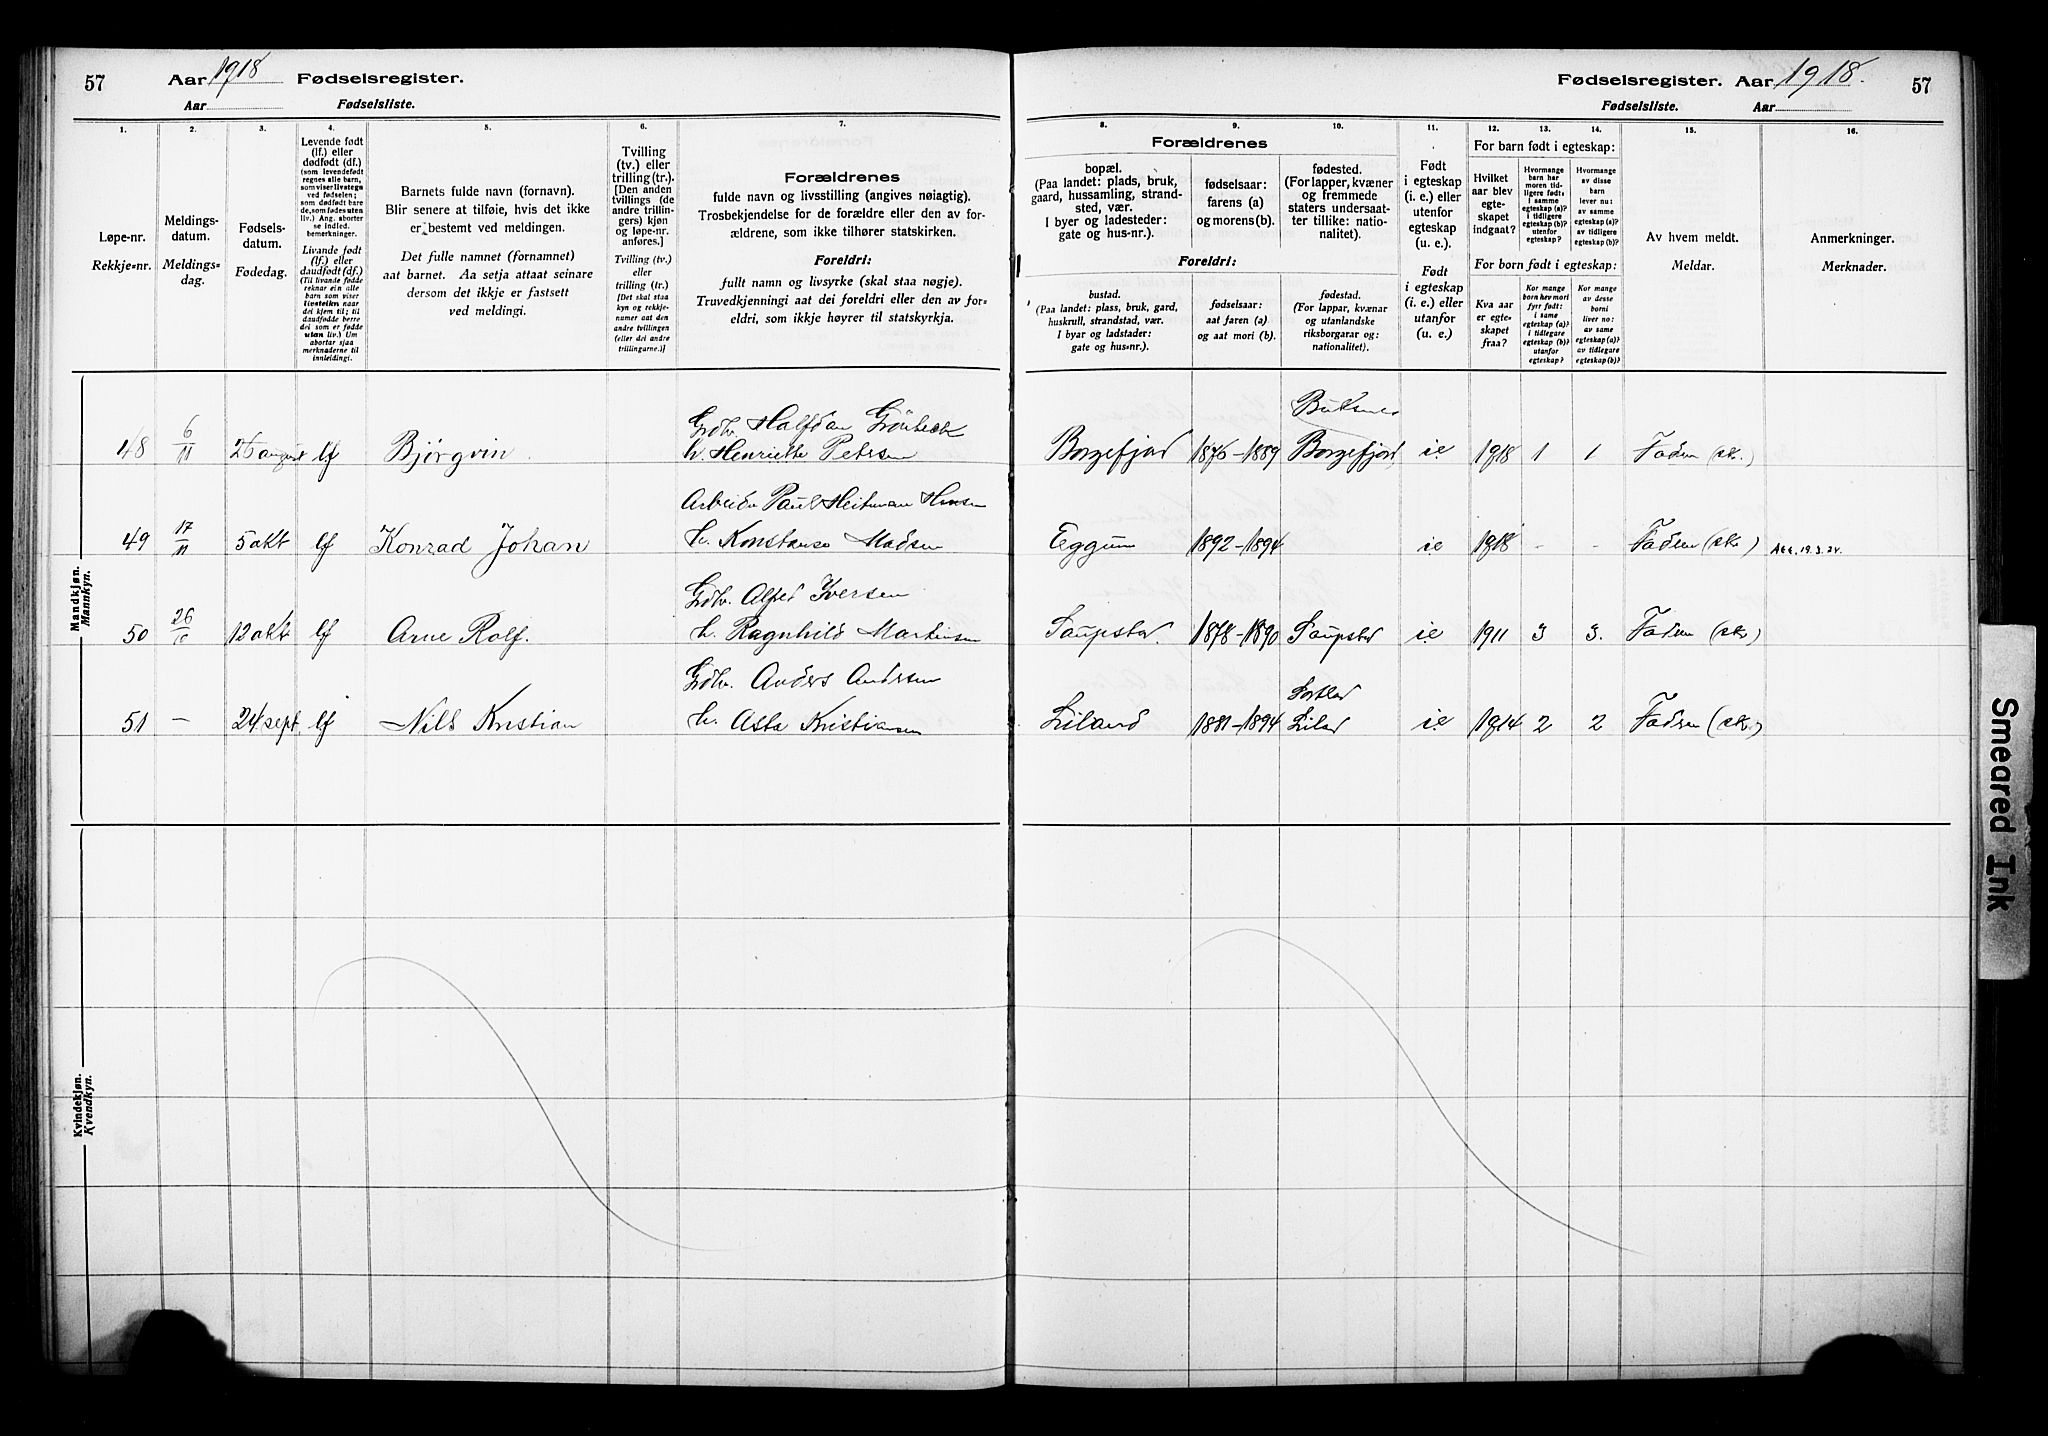 57
Aar 1918 Fødselsregister.
Aar Fødselsliste.
1.
Løpe-nr.
Rekkje-nr.
2.
Meldings-
datum.
Meldings-
dag.
3.
Fødsels-
datum.
Fødedag.
4.
Levende født
(lf.) eller
dødfødt (df.)
(som levendefødt
regnes alle barn,
som viser livstegn
ved fødselen;
som dødfødt bare
de, som fødes uten
liv.) Ang. aborter
se indled.
bemerkninger.
Livande født
(lf.) eller
daudfødt (df.)
(Til livande fødde
reknar ein alle
barn som viser
livsteikn naar
dei kjem til; til
daudfødde berre
dei som er fødde
utan liv.) Um
abortar sjaa
merknaderne til
innleidingi.
5.
Barnets fulde navn (fornavn).
Blir senere at tilføie, hvis det ikke
er bestemt ved meldingen.
Det fulle namnet (fornamnet)
aat barnet. Aa setja attaat seinare
dersom det ikkje er fastsett
ved meldingi.
6.
Tvilling
(tv.) eller
trilling (tr.).
[Den anden
tvillings (de
andre trillin-
gers) kjøn
og løpe-nr.
anføres.]
Tvilling (tv.)
eller
trilling (tr.)
[Det skal staa
kyn og rekkje-
numer aat den
andre tvillingen
(eller dei andre
trillingarne.)]
7.
Forældrenes
fulde navn og livsstilling (angives nøiagtig).
Trosbekjendelse for de forældre eller den av for-
ældrene, som ikke tilhører statskirken.
Foreldri:
fullt namn og livsyrke (skal staa nøgje).
Truvedkjenningi aat dei foreldri eller den av for-
eldri, som ikkje høyrer til statskyrkja.
Mandkjøn.
Mannkyn.
48 6/11 26 august lf Bjørgvin
Gdbr. Halfdan Grönbech
h. Henriette Petersen
49 17/11 5 okt lf Konrad Johan
Arbeider Paul Heitman Hansen
h. Konstanse Madsen
50 26/10 12 okt lf Arne Rolf.
Gdbr. Alfred Iversen
h. Ragnhild Martinsen
51 – 24 sept lf Nils Kristian
Gdbr. Anders Andersen
h. Asta Kristiansen
Kvindekjøn.
Kvendkyn.
Fødselsregister. Aar 1918.
Fødselsliste. Aar
57
8.
Forældrenes
bopæl.
(Paa landet: plads, bruk,
gaard, hussamling, strand-
sted, vær.
I byer og ladesteder:
gate og hus-nr.).
9.
fødselsaar:
farens (a)
og morens (b).
10.
fødested.
(For lapper, kvæner
og fremmede
staters undersaat-
ter tillike: natio-
nalitet).
Foreldri:
bustad.
(Paa landet: plass, bruk, gard,
huskrull, strandstad, vær.
I byar og ladstader:
gate og hus-nr.).
fødselsaar:
aat faren (a)
og aat mori (b).
fødestad.
(For lappar, kvænar
og utanlandske
riksborgarar og:
nationalitet).
11.
Født
i egteskap
(i. e.) eller
utenfor
egteskap
(u. e.).
Født
i egteskap
(i. e.) eller
utanfor
(u. e.).
12. 13. 14.
For barn født i egteskap:
Hvilket
aar blev
egte-
skapet
indgaat?
Hvormange
barn har
moren tid-
ligere født:
i samme
egteskap (a)?
i tidligere
egteskap (b)?
utenfor
egteskap?
Hvormange
av disse
barn
lever nu:
av samme
egteskap (a)?
av tidligere
egteskap (b)?
For born født i egteskap:
Kva aar
er egte-
skapet
fraa?
Kor mange
born hev mori
fyrr født:
i same
egteskap (a)?
i tidlegare
egteskap (b)?
utanfor
egteskap?
Kor mange
av desse
borni
liver no:
av same
egteskap (a)?
av tidlegare
egteskap (b)?
15.
Av hvem meldt.
Meldar.
16.
Anmerkninger.
Merknader.
Borgefjord 1876–1889 Buksnes Borgefjord i.e 1918 1 1 Faderen (sk.)
Eggum 1892–1894 i.e 1918 - - Faderen (sk.) Att. 19.3.24.
Saupstad 1878–1890 Saupstad i.e 1911 3 3. Faderen (sk)
Liland 1881–1894 Sortland Liland i.e 1914 2 2 Faderen (sk.)
Smeared Ink